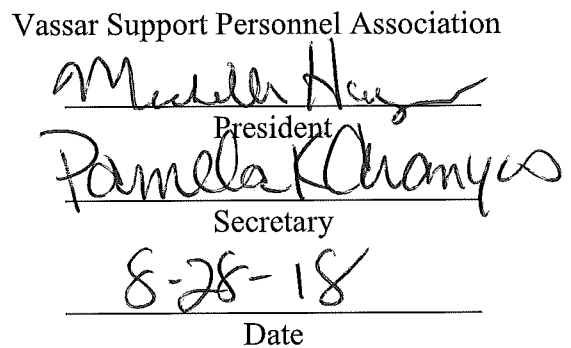 Vassar Support Personnel Association
Michelle
President
Pamela K
Secretary
8-28-18
Date